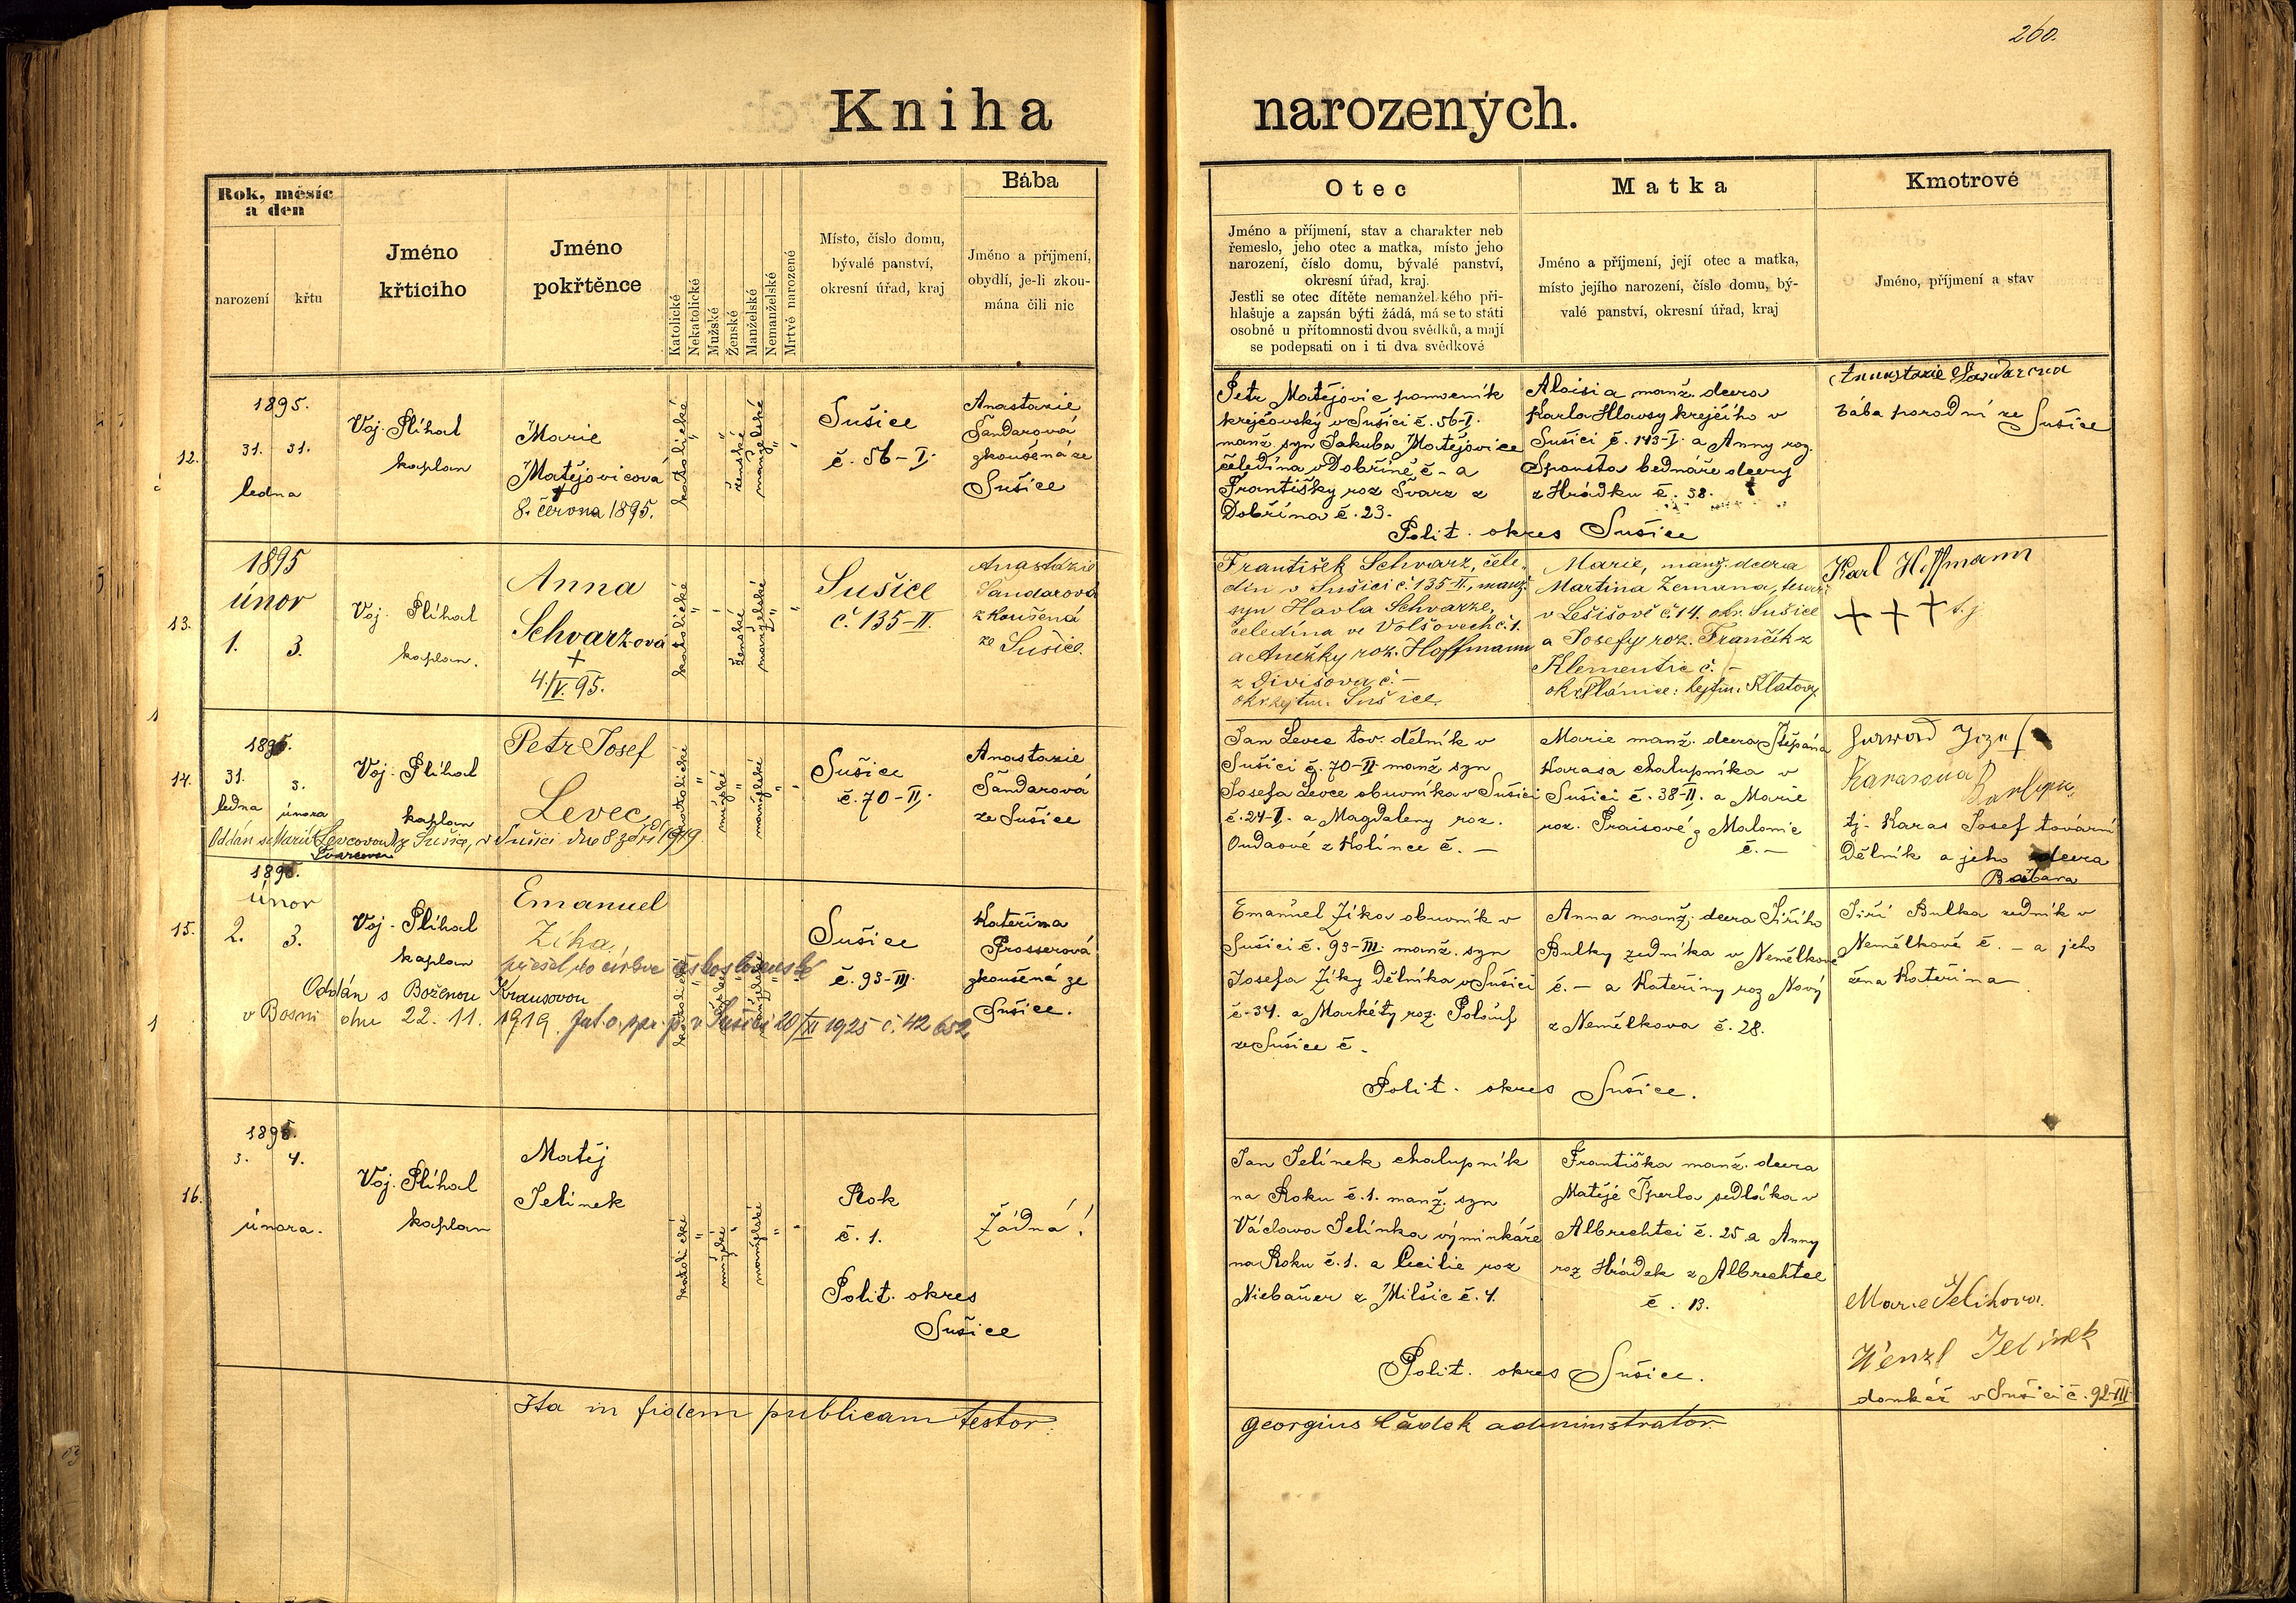 260.
Kniha narozených.
Rok, měsíc
a den
narození
křtu
Jméno
křticího
Jméno
pokřtěnce
Katolické
Nekatolické
Mužské
Ženské
Manželské
Nemanželské
Mrtvé narozené
Místo, číslo domu,
bývalé panství,
okresní úřad, kraj
Bába
Jméno a přijmení,
obydlí, je-li zkou-
mána čili nic
Otec
Jméno a příjmení, stav a charakter neb
řemeslo, jeho otec a matka, místo jeho
narození, číslo domu, bývalé panství,
okresní úřad, kraj.
Jestli se otec dítěte nemanželského při-
hlašuje a zapsán býti žádá, má se to státi
osobně u přítomnosti dvou svědků, a mají
se podepsati on i ti dva svědkové
Matka
Jméno a příjmení, její otec a matka,
místo jejího narození, číslo domu, bý-
valé panství, okresní úřad, kraj
Kmotrové
Jméno, příjmení a stav
12.
1895.
31. 31.
ledna
Voj. Plíhal
kaplan
Marie
Matějovicová
†
8. června 1895.
katolické
"
"
ženské
manželské
"
Sušice
č. 56-I.
Anastazie
Šandarová
zkoušená ze
Sušice
Petr Matějovic pomocník
krejčovský v Sušici č. 56-I.
manž. syn Jakuba Matějovice
čeledína v Dobříně č - a
Františky roz Švarz z
Dobřína č. 23.
Aloisia manž. dcera
Karla Hlavsy krejčího v
Sušici č. 143-I. a Anny roz.
Spousta bednáře dcery
z Hrádku č. 38.
Polit. okres Sušice
bába porodní ze
Sušice
13.
1895
únor
1. 3.
Voj. Plíhal
kaplan.
Anna
Schvarzová
+
4./V. 95.
katolické
"
ženské
manželské
"
Sušice
č. 135-II.
Anastázie
Šandarová
zkoušená
ze Sušice.
František Schvarz, čele-
dín v Sušici č 135-II, manž.
syn Havla Schvarze,
čeledína ve Volšovech č. 1.
a Anežky roz. Hoffmann
z Divišova č. -
okr. hejtm. Sušice.
Marie, manž. dcera
Martina Zemana,
v Lešišově č. 14. okr. Sušice
a Josefy roz. Frančík z
Klementic č. -
okr. Plánice: hejtm. Klatovy.
Karl Hoffmann
+ + + t. j
14.
1895.
31. 3.
ledna února
Voj. Plíhal
kaplan
Petr Josef
Levec
katolické
"
mužské
"
manželské
"
Sušice
č. 70-II.
Anastazie
Šandarová
ze Sušice
Oddán s Marií Levcovou ze Sušice, v Sušici dne 8 září 1919.
Jan Levec tov. dělník v
Sušici č. 70-II manž. syn
Josefa Levce obuvníka v Sušici
č. 24-I. a Magdaleny roz.
Oudaové z Kolince č. -
Marie manž. dcera Štěpána
Karasa chalupníka v
Sušici č. 38-II. a Marie
roz. Praisové z Malonic
č. -
Karasova
tj. Karas Josef tovární
dělník a jeho dcera
Barbara
15.
1895.
únor
2. 3.
Voj. Plíhal
kaplan
Emanuel
Zíka
přešel do církve československé
katolické
mužské
manželské
Sušice
č. 93-III.
Kateřina
Prosserová
zkoušená ze
Sušice.
Oddán s Boženou Krausovou
v Bosni dne 22. 11. 1919. v Sušici 20/XI 1925 č. 42652
Emanuel Zíka obuvník v
Sušici č. 93-III. manž. syn
Josefa Zíky dělníka v Sušici
č. 34. a Markéty roz.
ze Sušice č -
Anna manž. dcera Jiřího
Bulky zedníka v Nemělkově
č. - a Kateřiny roz Nový
z Nemělkova č. 28.
Jiří Bulka zedník v
Nemělkově č. - a jeho
žena Kateřina
Polit. okres Sušice.
16.
1895.
3. 4.
února.
Voj. Plíhal
kaplan
Matěj
Jelínek
katolické
"
mužské
"
manželské
"
Rok
č. 1.
Polit. okres
Sušice
Žádná!
Jan Jelínek chalupník
na Roku č. 1. manž. syn
Václava Jelínka výminkáře
na Roku č. 1. a Cecilie roz
Niebauer z Milšic č. 4.
Františka manž. dcera
Matěje Šperla sedláka v
Albrechtci č. 25. a Anny
roz Hrádek z Albrechtce
č. 13.
Polit. okres Sušice.
Wenzl Jelinek
domkář v Sušici č. 92-III
Ita in fidem publicam testor.
Georgius Čádek administrator